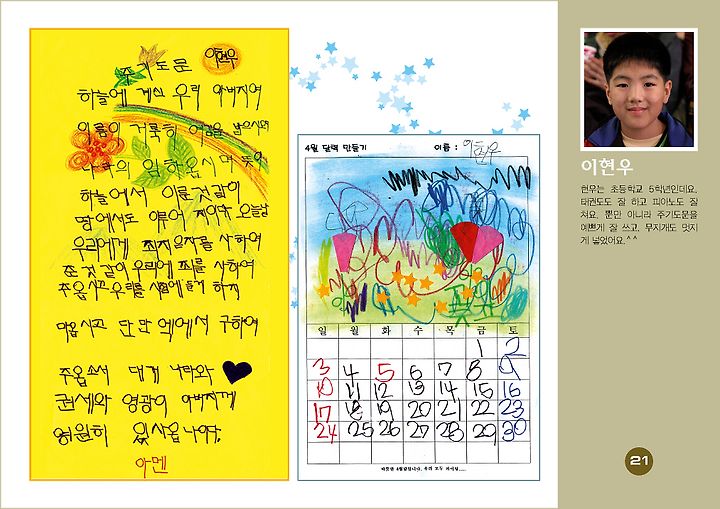 이현우
주기도문
하늘에 계신 우리 아버지여
이름이 거룩히 여김을 받으시며
나라의 임하옵시며 뜻이
하늘에서 이룬것같이
땅에서도 이루어 지이다 오늘날
우리에게 죄지은자를 사하여
준것같이 우리에 죄를 사하여
주옵시고 우리를 시험에 들게 하지
마옵시고 단만 악에서 구하여
주옵소서 대게 나라와
권세와 영광이 아버지께
영원히 있사옵나이다.
아멘
4월 달력 만들기 이름 : 이현우
일 월 화 수 목 금 토
1 2
3 4 5 6 7 8 9
10 11 12 13 14 15 16
17 18 19 20 21 22 23
24 25 26 27 28 29 30
이현우
현우는 초등학교 5학년인데요,
태권도도 잘 하고 피아노도 잘
쳐요. 뿐만 아니라 주기도문을
예쁘게 잘 쓰고, 무지개도 멋지
게 넣었어요.^^
21